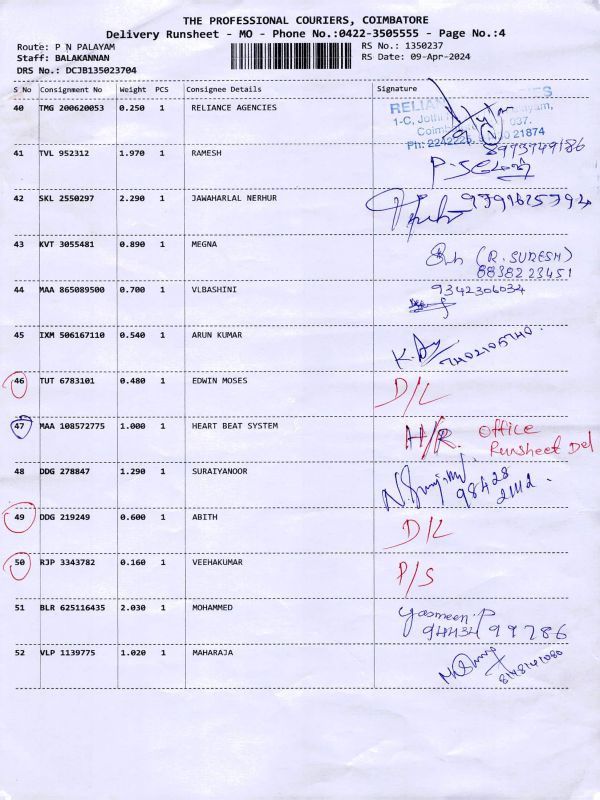 THE PROFESSIONAL COURIERS, COIMBATORE
Delivery Runsheet - MO - Phone No.:0422-3505555 - Page No.:4
Route: P N PALAYAM RS No.: 1350237
Staff: BALAKANNAN RS Date: 09-Apr-2024
DRS No.: DCJB135023704
S No Consignment No Weight PCS Consignee Details Signature
40 TMG 200620053 0.250 1 RELIANCE AGENCIES
1-C, 037.
Ph: 21874
8973749186
41 TVL 952312 1.970 1 RAMESH
42 SKL 2550297 2.290 1 JAWAHARLAL NERHUR
43 KVT 3055481 0.890 1 MEGNA (R. SURESH)
8838223451
44 MAA 865089500 0.700 1 VLBASHINI 9342306034
45 IXM 506167110 0.540 1 ARUN KUMAR
46 TUT 6783101 0.480 1 EDWIN MOSES D/L
47 MAA 108572775 1.000 1 HEART BEAT SYSTEM H/R. Office
Runsheet Del
48 DDG 278847 1.290 1 SURAIYANOOR
98428
49 DDG 219249 0.600 1 ABITH D/L
50 RJP 3343782 0.160 1 VEEHAKUMAR P/S
51 BLR 625116435 2.030 1 MOHAMMED Yasmeen.P
52 VLP 1139775 1.020 1 MAHARAJA 8148141080